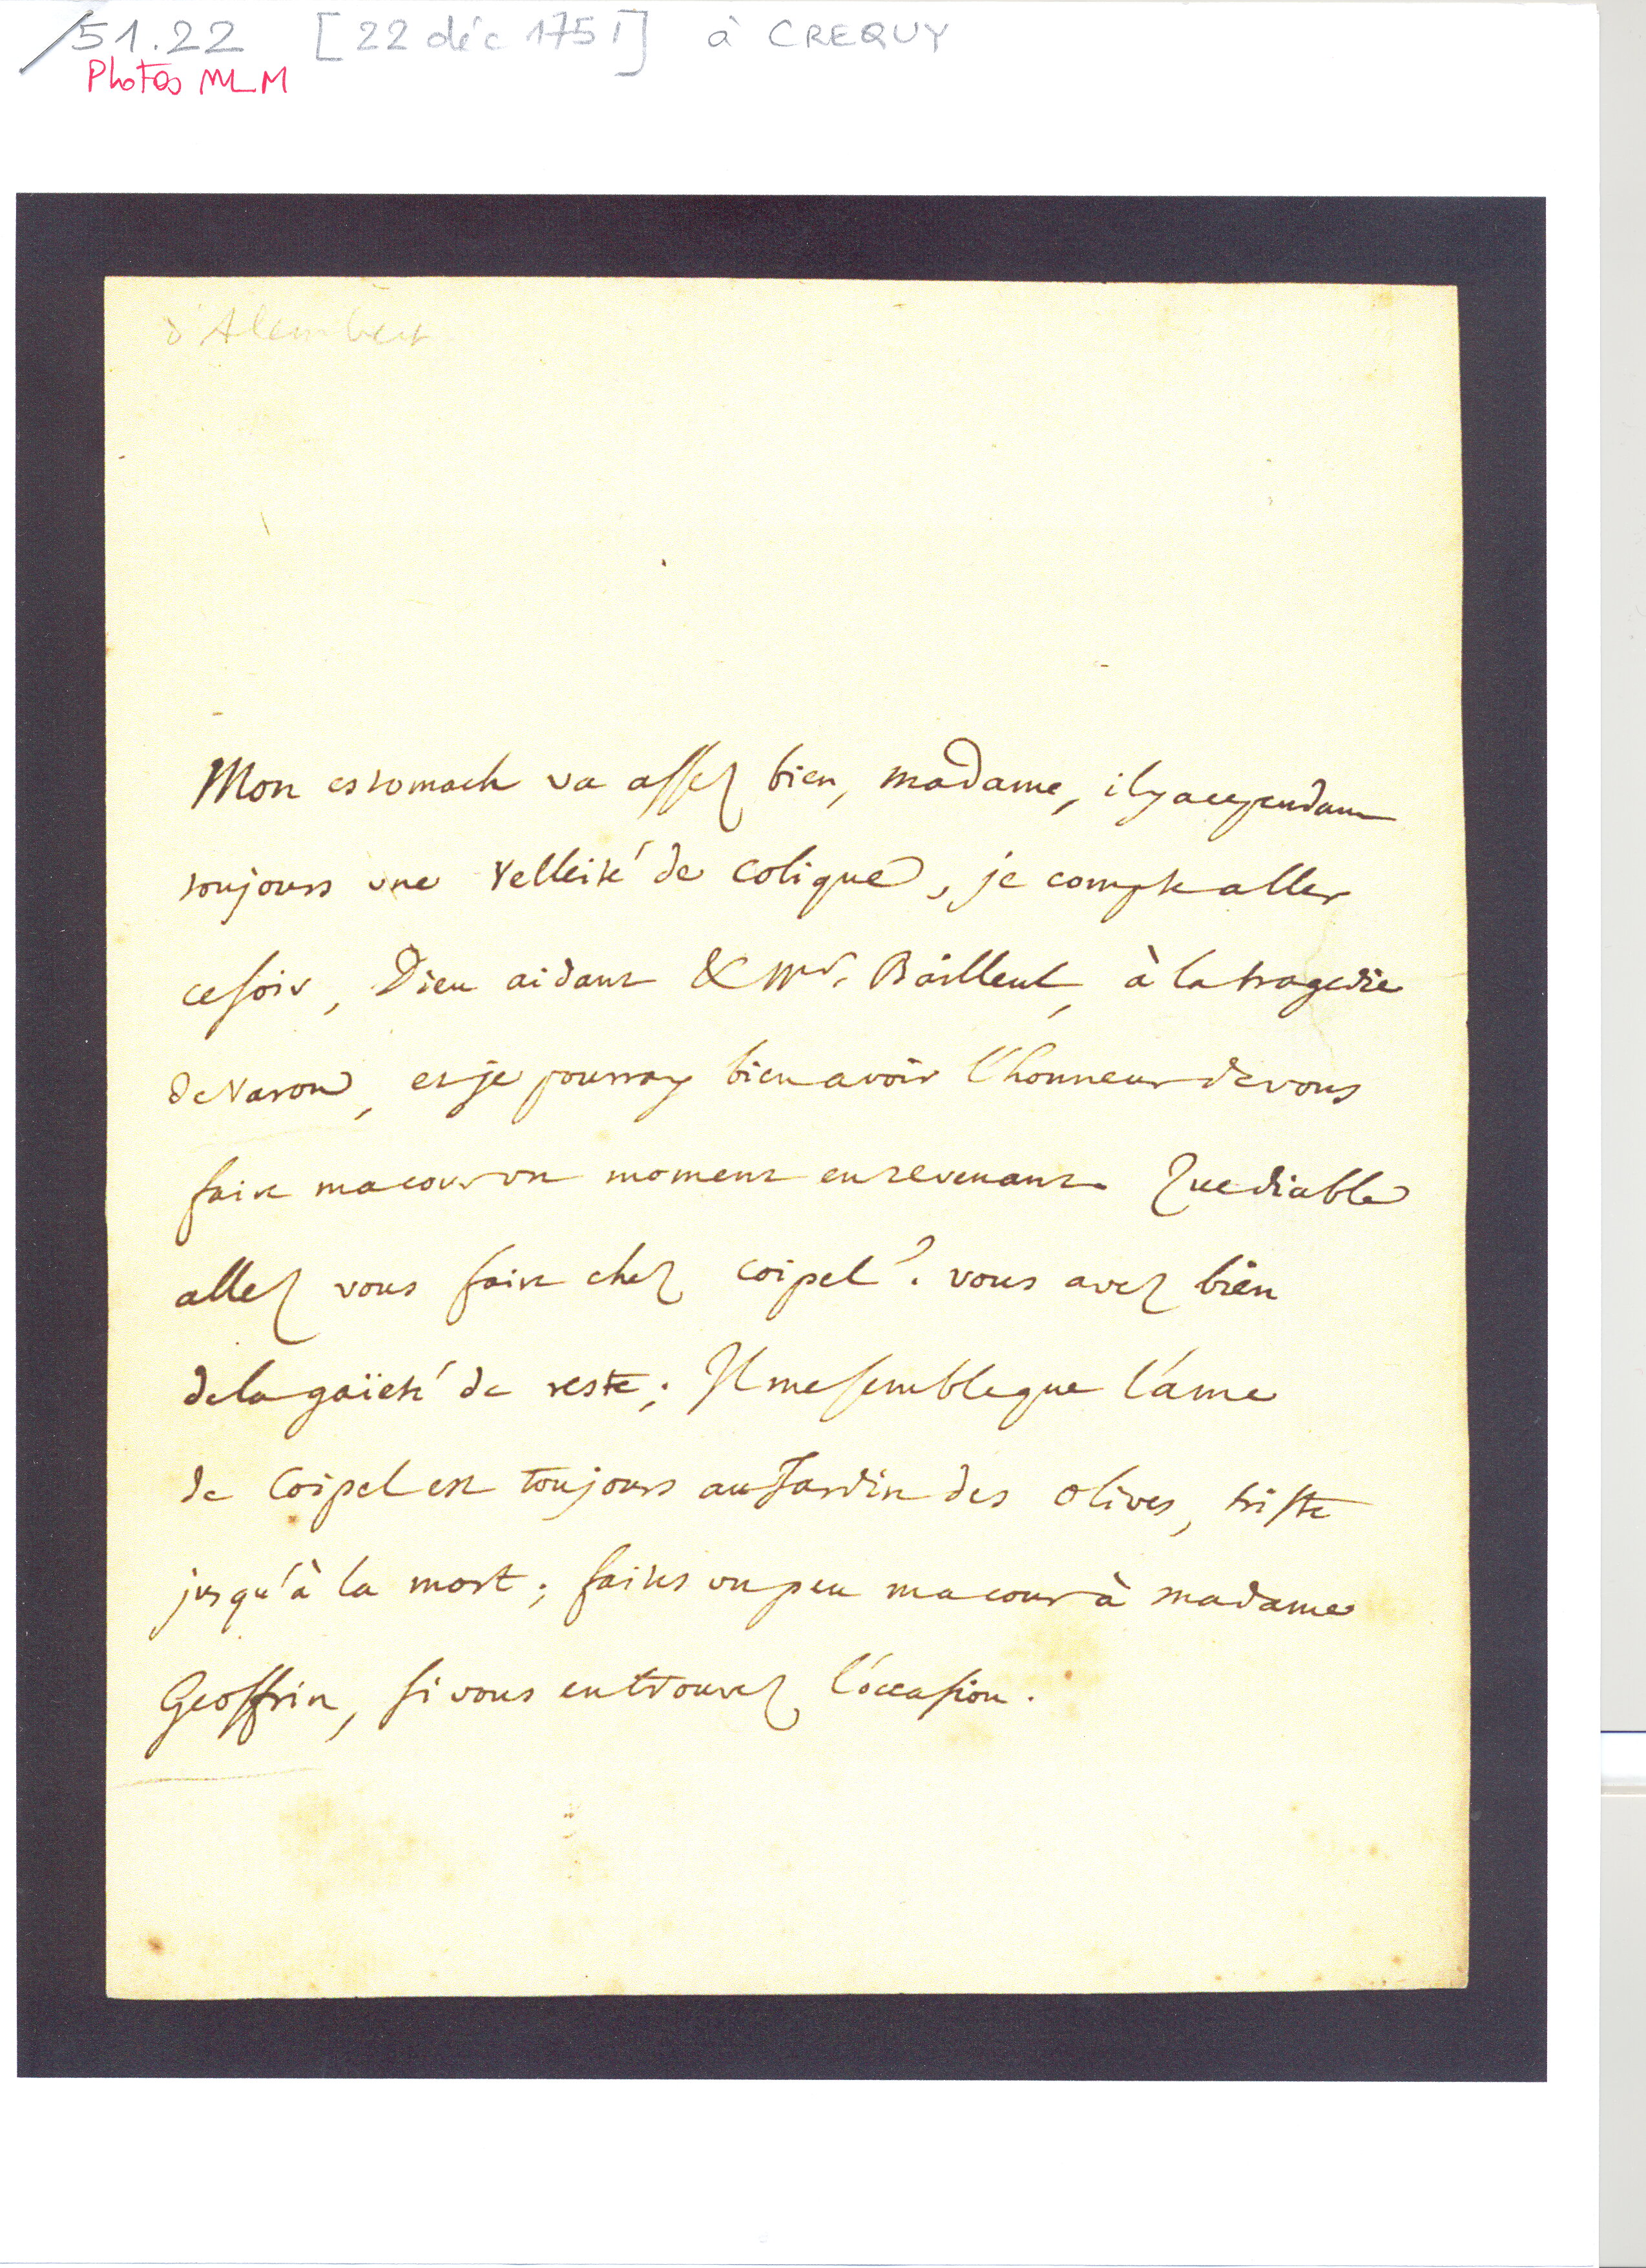 51.22 [22 déc 1751] à CREQUY
Photos MLM
d'Alembert
Mon estomach va assez bien, madame, il y a cependant
toujours une velleité de colique, je compte aller
ce soir, Dieu aidant & Mr. Bailleul, à la tragedie
de Varon, et je pourray bien avoir l'honneur de vous
faire ma cour un moment en revenant. Que diable
allez vous faire chez Coipel? vous avez bien
de la gaïeté de reste; Il me semble que l'ame
de Coipel est toujours au Jardin des olives, triste
jusqu'à la mort; faites un peu ma cour à madame
Geoffrin, si vous en trouvez l'occasion.